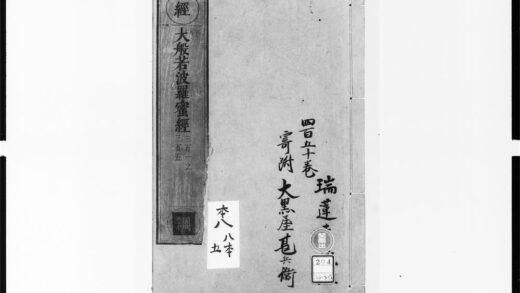 經
大般若波羅蜜經
三百一之
三百五
四百五十巻
寄附 大黒屋甚兵衛
瑞蓮
本八
八本
五
294